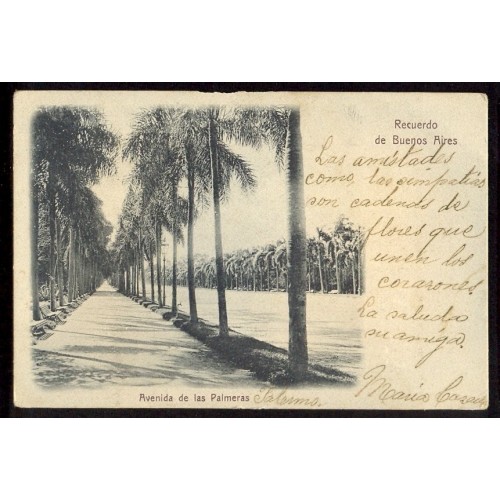 Recuerdo
de Buenos Aires
Las amistades
como las simpatias
son cadenas de
flores que
unen los
corazones.
La saluda
su amiga.
Maria
Avenida de las Palmeras Palermo.